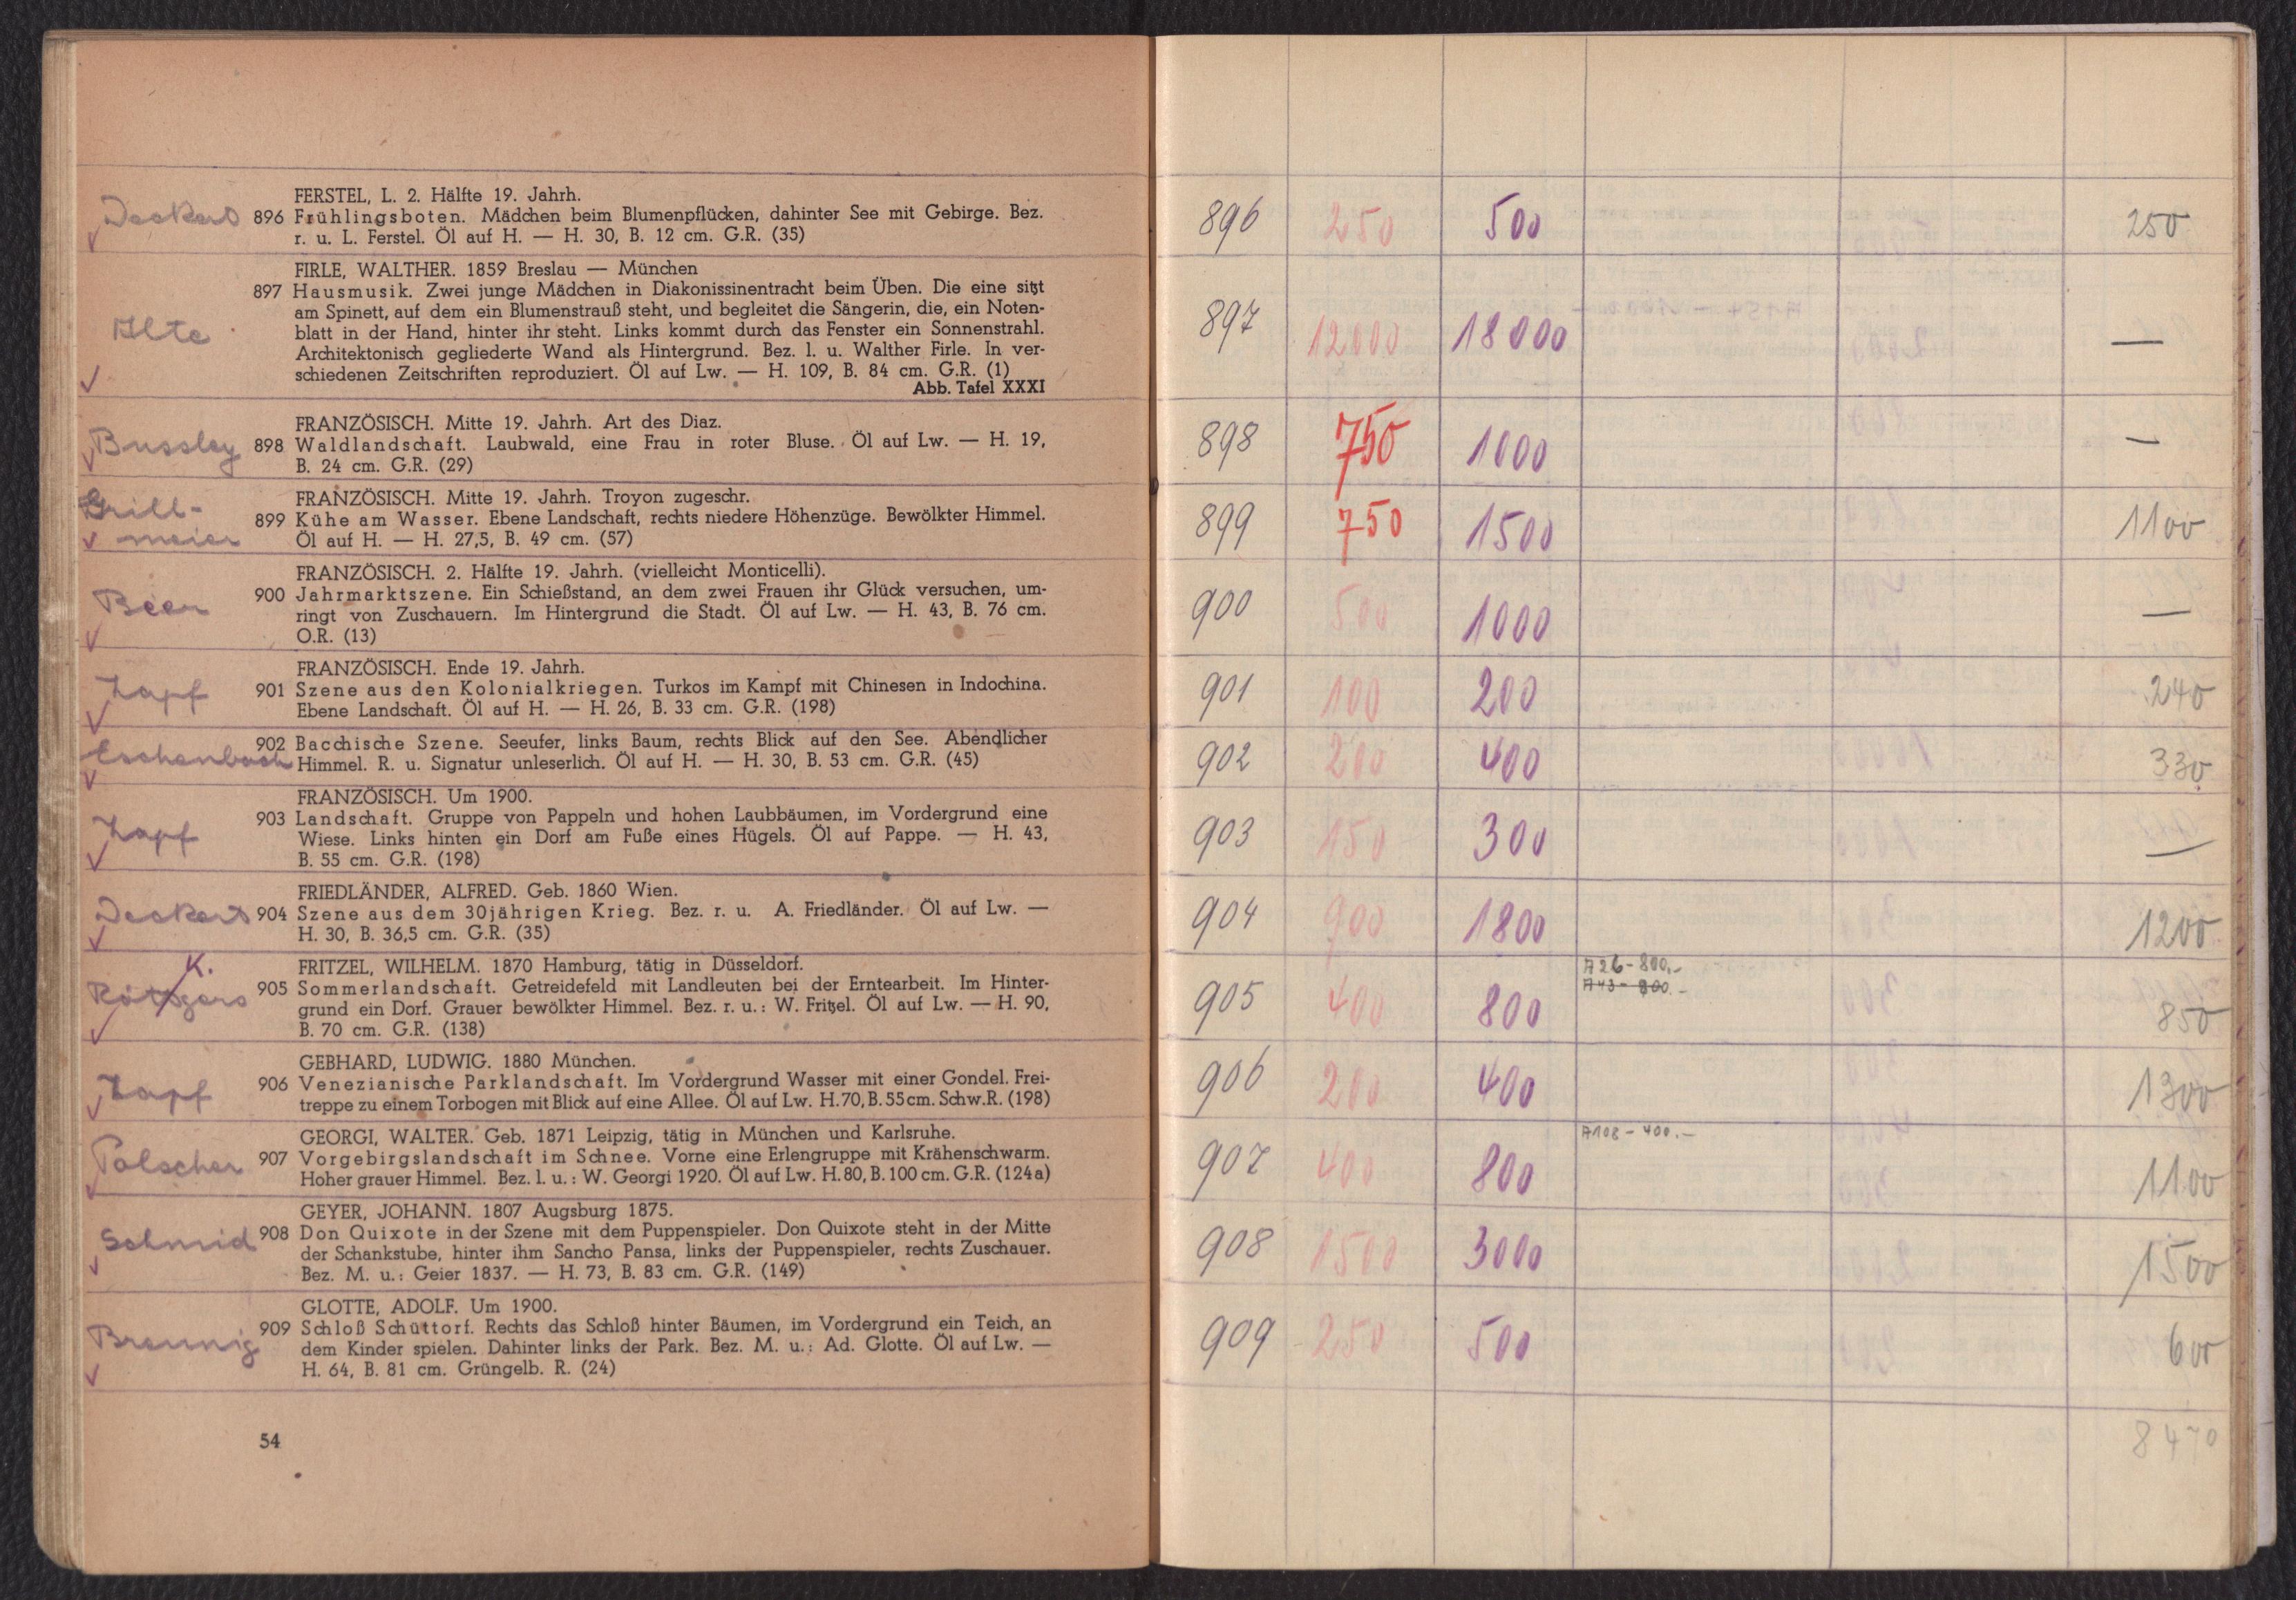 FERSTEL, L. 2. Hälfte 19. Jahrh.
Deckert 896 Frühlingsboten. Mädchen beim Blumenpflücken, dahinter See mit Gebirge. Bez.
r. u. L. Ferstel. Öl auf H. — H. 30, B. 12 cm. G.R. (35)
FIRLE, WALTHER. 1859 Breslau — München
897 Hausmusik. Zwei junge Mädchen in Diakonissinentracht beim Üben. Die eine sitzt
am Spinett, auf dem ein Blumenstrauß steht, und begleitet die Sängerin, die, ein Noten-
Ilte blatt in der Hand, hinter ihr steht. Links kommt durch das Fenster ein Sonnenstrahl.
Architektonisch gegliederte Wand als Hintergrund. Bez. l. u. Walther Firle. In ver-
schiedenen Zeitschriften reproduziert. Öl auf Lw. — H. 109, B. 84 cm. G.R. (1)
Abb. Tafel XXXI
FRANZÖSISCH. Mitte 19. Jahrh. Art des Diaz.
Bussley 898 Waldlandschaft. Laubwald, eine Frau in roter Bluse. Öl auf Lw. — H. 19,
B. 24 cm. G.R. (29)
FRANZÖSISCH. Mitte 19. Jahrh. Troyon zugeschr.
Grill- 899 Kühe am Wasser. Ebene Landschaft, rechts niedere Höhenzüge. Bewölkter Himmel.
meier Öl auf H. — H. 27,5, B. 49 cm. (57)
FRANZÖSISCH. 2. Hälfte 19. Jahrh. (vielleicht Monticelli).
Beer 900 Jahrmarktszene. Ein Schießstand, an dem zwei Frauen ihr Glück versuchen, um-
ringt von Zuschauern. Im Hintergrund die Stadt. Öl auf Lw. — H. 43, B. 76 cm.
O.R. (13)
FRANZÖSISCH. Ende 19. Jahrh.
Zapf 901 Szene aus den Kolonialkriegen. Turkos im Kampf mit Chinesen in Indochina.
Ebene Landschaft. Öl auf H. — H. 26, B. 33 cm. G.R. (198)
902 Bacchische Szene. Seeufer, links Baum, rechts Blick auf den See. Abendlicher
Eschenbach Himmel. R. u. Signatur unleserlich. Öl auf H. — H. 30, B. 53 cm. G.R. (45)
FRANZÖSISCH. Um 1900.
Zapf 903 Landschaft. Gruppe von Pappeln und hohen Laubbäumen, im Vordergrund eine
Wiese. Links hinten ein Dorf am Fuße eines Hügels. Öl auf Pappe. — H. 43,
B. 55 cm. G.R. (198)
FRIEDLÄNDER, ALFRED. Geb. 1860 Wien.
Deckert 904 Szene aus dem 30jährigen Krieg. Bez. r. u. A. Friedländer. Öl auf Lw. —
H. 30, B. 36,5 cm. G.R. (35)
K. FRITZEL, WILHELM. 1870 Hamburg, tätig in Düsseldorf.
Röttgers 905 Sommerlandschaft. Getreidefeld mit Landleuten bei der Erntearbeit. Im Hinter-
grund ein Dorf. Grauer bewölkter Himmel. Bez. r. u.: W. Fritzel. Öl auf Lw. — H. 90,
B. 70 cm. G.R. (138)
GEBHARD, LUDWIG. 1880 München.
Zapf 906 Venezianische Parklandschaft. Im Vordergrund Wasser mit einer Gondel. Frei-
treppe zu einem Torbogen mit Blick auf eine Allee. Öl auf Lw. H. 70, B. 55 cm. Schw.R. (198)
GEORGI, WALTER. Geb. 1871 Leipzig, tätig in München und Karlsruhe.
Pölscher 907 Vorgebirgslandschaft im Schnee. Vorne eine Erlengruppe mit Krähenschwarm.
Hoher grauer Himmel. Bez. l. u.: W. Georgi 1920. Öl auf Lw. H. 80, B. 100 cm. G.R. (124a)
GEYER, JOHANN. 1807 Augsburg 1875.
Schmid 908 Don Quixote in der Szene mit dem Puppenspieler. Don Quixote steht in der Mitte
der Schankstube, hinter ihm Sancho Pansa, links der Puppenspieler, rechts Zuschauer.
Bez. M. u.: Geier 1837. — H. 73, B. 83 cm. G.R. (149)
GLOTTE, ADOLF. Um 1900.
Brennig 909 Schloß Schüttorf. Rechts das Schloß hinter Bäumen, im Vordergrund ein Teich, an
dem Kinder spielen. Dahinter links der Park. Bez. M. u.: Ad. Glotte. Öl auf Lw. —
H. 64, B. 81 cm. Grüngelb. R. (24)
54
896 250 500 250
897 12000 18000 —
898 750 1000 —
899 750 1500 1100
900 500 1000 —
901 100 200 240
902 200 400 330
903 150 300 —
904 900 1800 1200
A26 - 800.-
A43 - 800.-
905 400 800 850
906 200 400 1300
A108 - 400.-
907 400 800 1100
908 1500 3000 1500
909 250 500 600
8470